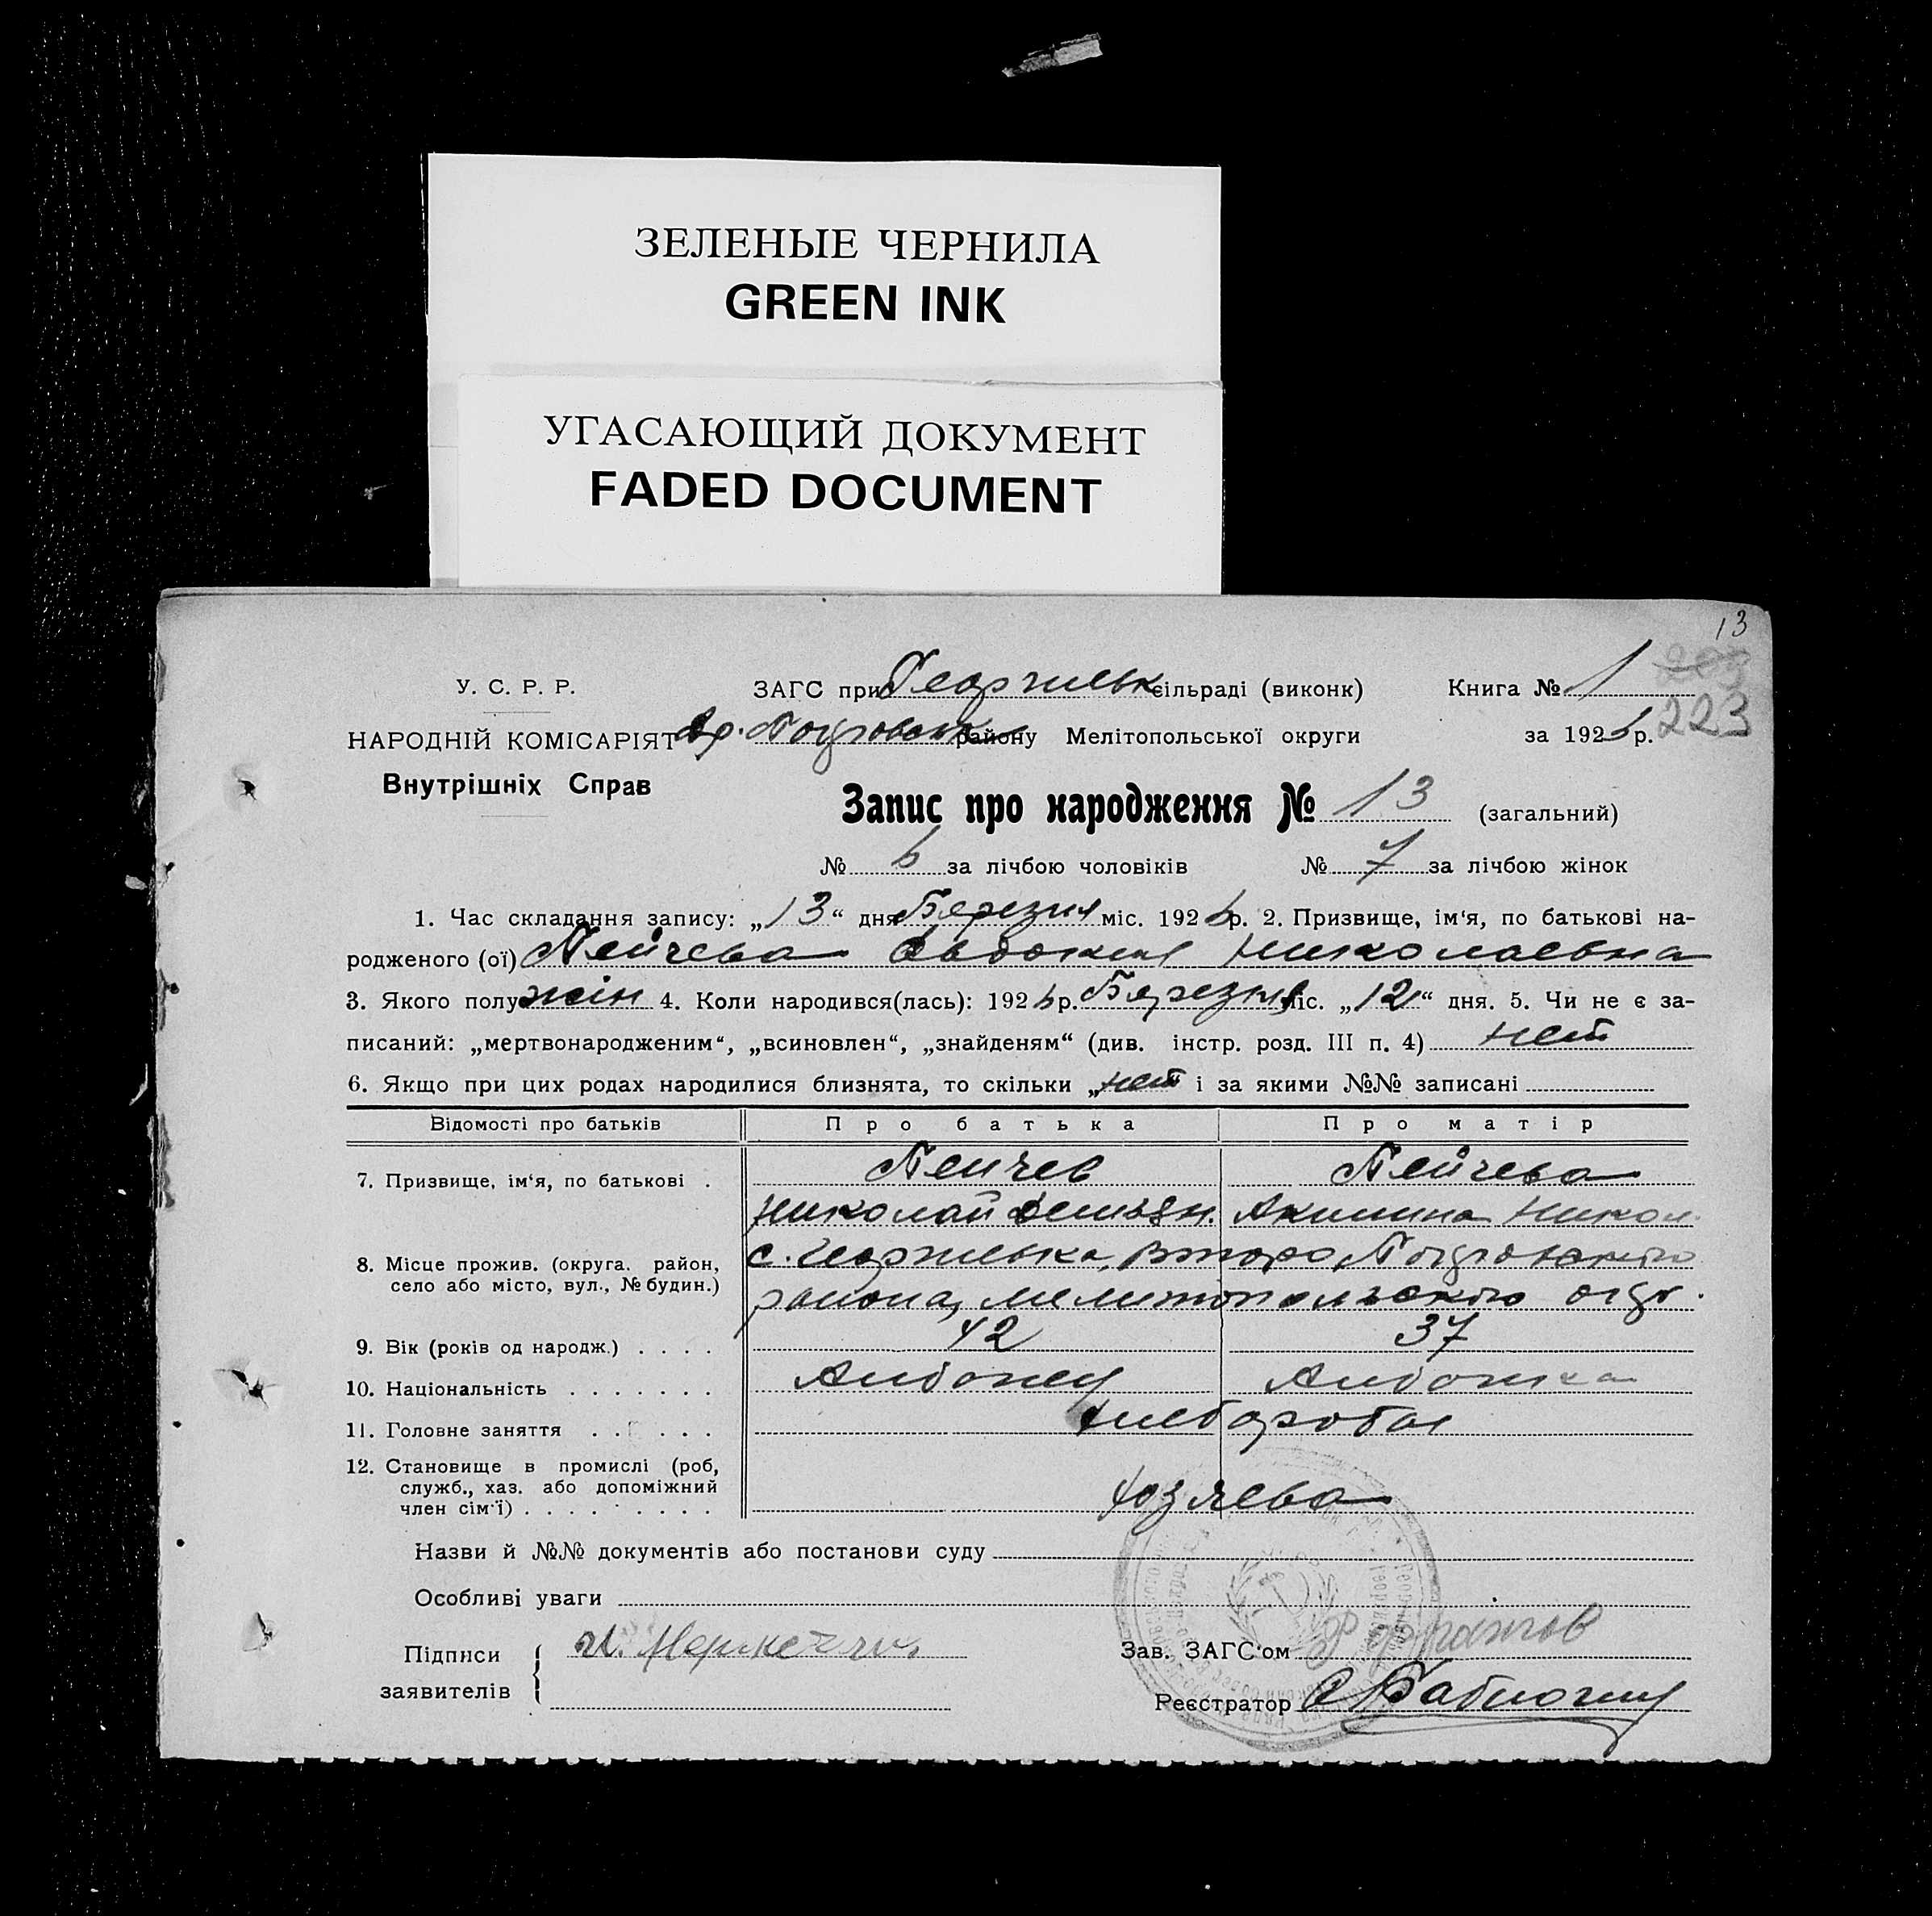 ЗЕЛЕНЫЕ ЧЕРНИЛА
GREEN INK
УГАСАЮЩИЙ ДОКУМЕНТ
FADED DOCUMENT
13
У. С. Р. Р. ЗАГС при Георгиевск сільраді (виконк) Книга № 1
223
НАРОДНІЙ КОМІСАРІЯТ району Мелітопольської округи за 1926 р.
Внутрішніх Справ
Запис про народження № 13 (загальний)
№ 6 за лічбою чоловіків № 7 за лічбою жінок
1. Час складання запису: „13“ дня Березня міс. 1926 р. 2. Призвище, ім‘я, по батькові на-
родженого (ої) Пейчева Евдокия Николаевна
3. Якого полу жін 4. Коли народився(лась): 1926 р. Березня міс. „12“ дня. 5. Чи не є за-
писаний: „мертвонародженим“, „всиновлен“, „знайденям“ (див. інстр. розд. III п. 4) нет
6. Якщо при цих родах народилися близнята, то скільки „нет і за якими №№ записані
Відомості про батьків Про батька Про матір
7. Призвище, ім‘я, по батькові . Пейчев Пейчева
Николай Акилина Никол.
8. Місце прожив. (округа. район,
село або місто, вул., № будин.)
с. Георгиевка,
района, мелитопольского окр.
9. Вік (років од народж.) . . . . 42 37
10. Національність . . . . . . . Албанец Албанка
11. Головне заняття . . . . . хлебороба
12. Становище в промислі (роб,
служб., хаз. або допоміжний
член сім‘ї) . . . . . . . . . хозяева
Назви й №№ документів або постанови суду
Особливі уваги
Підписи
заявителів
Зав. ЗАГС‘ом
Реєстратор